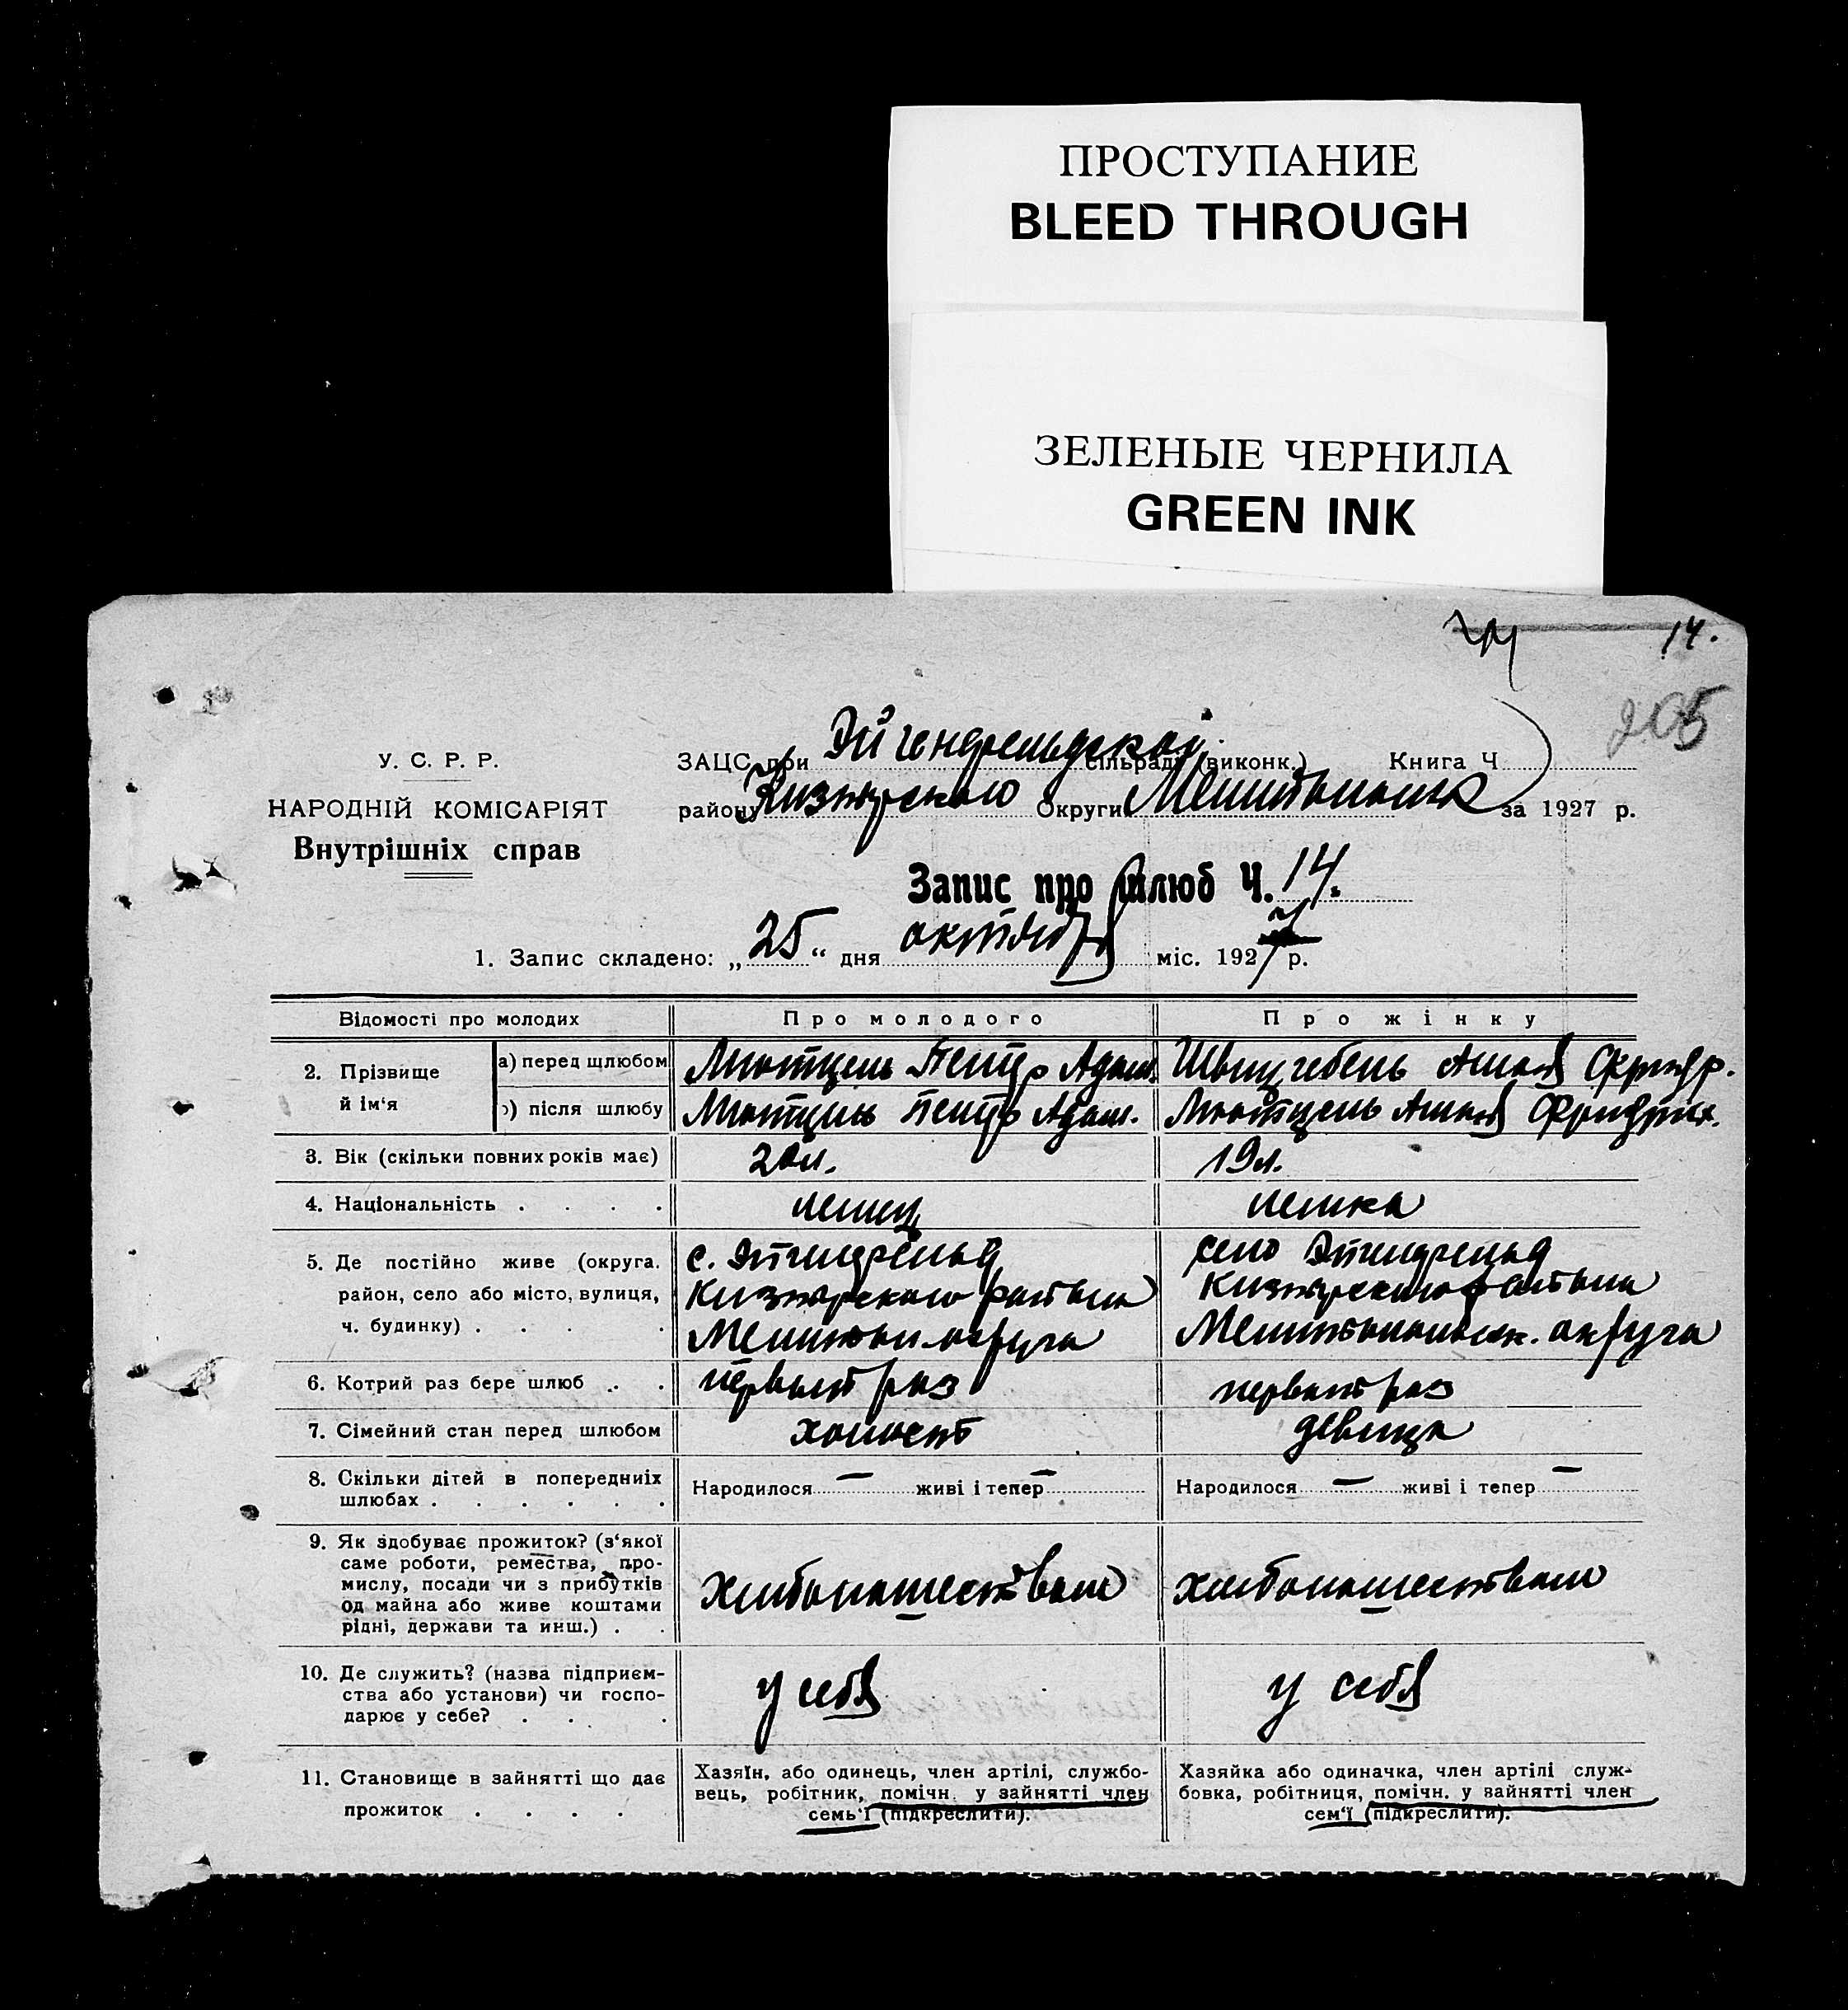 ПРОСТУПАНИЕ
BLEED THROUGH
ЗЕЛЕНЫЕ ЧЕРНИЛА
GREEN INK
14.
205
У. С. Р. Р.
НАРОДНІЙ КОМІСАРІЯТ
Внутрішніх справ
ЗАЦС при Эйгенфельдской сільраді (виконк.) Книга Ч
району Кизиярского Округи Мелитопольск за 1927 р.
Запис про шлюб Ч. 14.
1. Запис складено: „25“ дня октября міс. 1927 р.
Відомості про молодих
Про молодого
Про жінку
2. Прізвище й ім‘я
а) перед щлюбом
Мютцель Петр Адам.
Швицгебель Амалія Фридр.
б) після шлюбу
Мютцель Петр Адам.
Мютцель Амалія Фридрих.
3. Вік (скільки повних років має)
20 л.
19 л.
4. Національність . . . .
немец
немка
5. Де постійно живе (округа, район, село або місто, вулиця, ч. будинку) . . . .
с. Эйгенфельд
Кизиярского района
Мелитоп. округа
село Эйгенфельд
Кизиярского района
Мелитопольск. округа
6. Котрий раз бере шлюб . .
первый раз
первый раз
7. Сімейний стан перед шлюбом
холост
девица
8. Скільки дітей в попередниіх
шлюбах . . . . . .
Народилося — живі і тепер —
Народилося — живі і тепер —
9. Як здобуває прожиток? (з‘якої
саме роботи, ремества, про-
мислу, посади чи з прибутків
од майна або живе коштами
рідні, держави та инш.) . .
хлебопашеством
хлебопашеством
10. Де служить? (назва підприєм-
ства або установи) чи госпо-
дарює у себе? . . .
у себя
у себя
11. Становище в зайнятті що дає
прожиток . . . .
Хазяїн, або одинець, член артілі, службо-
вець, робітник, помічн. у зайнятті член
семь‘ї (підкреслити).
Хазяйка або одиначка, член артілі служ-
бовка, робітниця, помічн. у зайнятті член
сем‘ї (підкреслити).